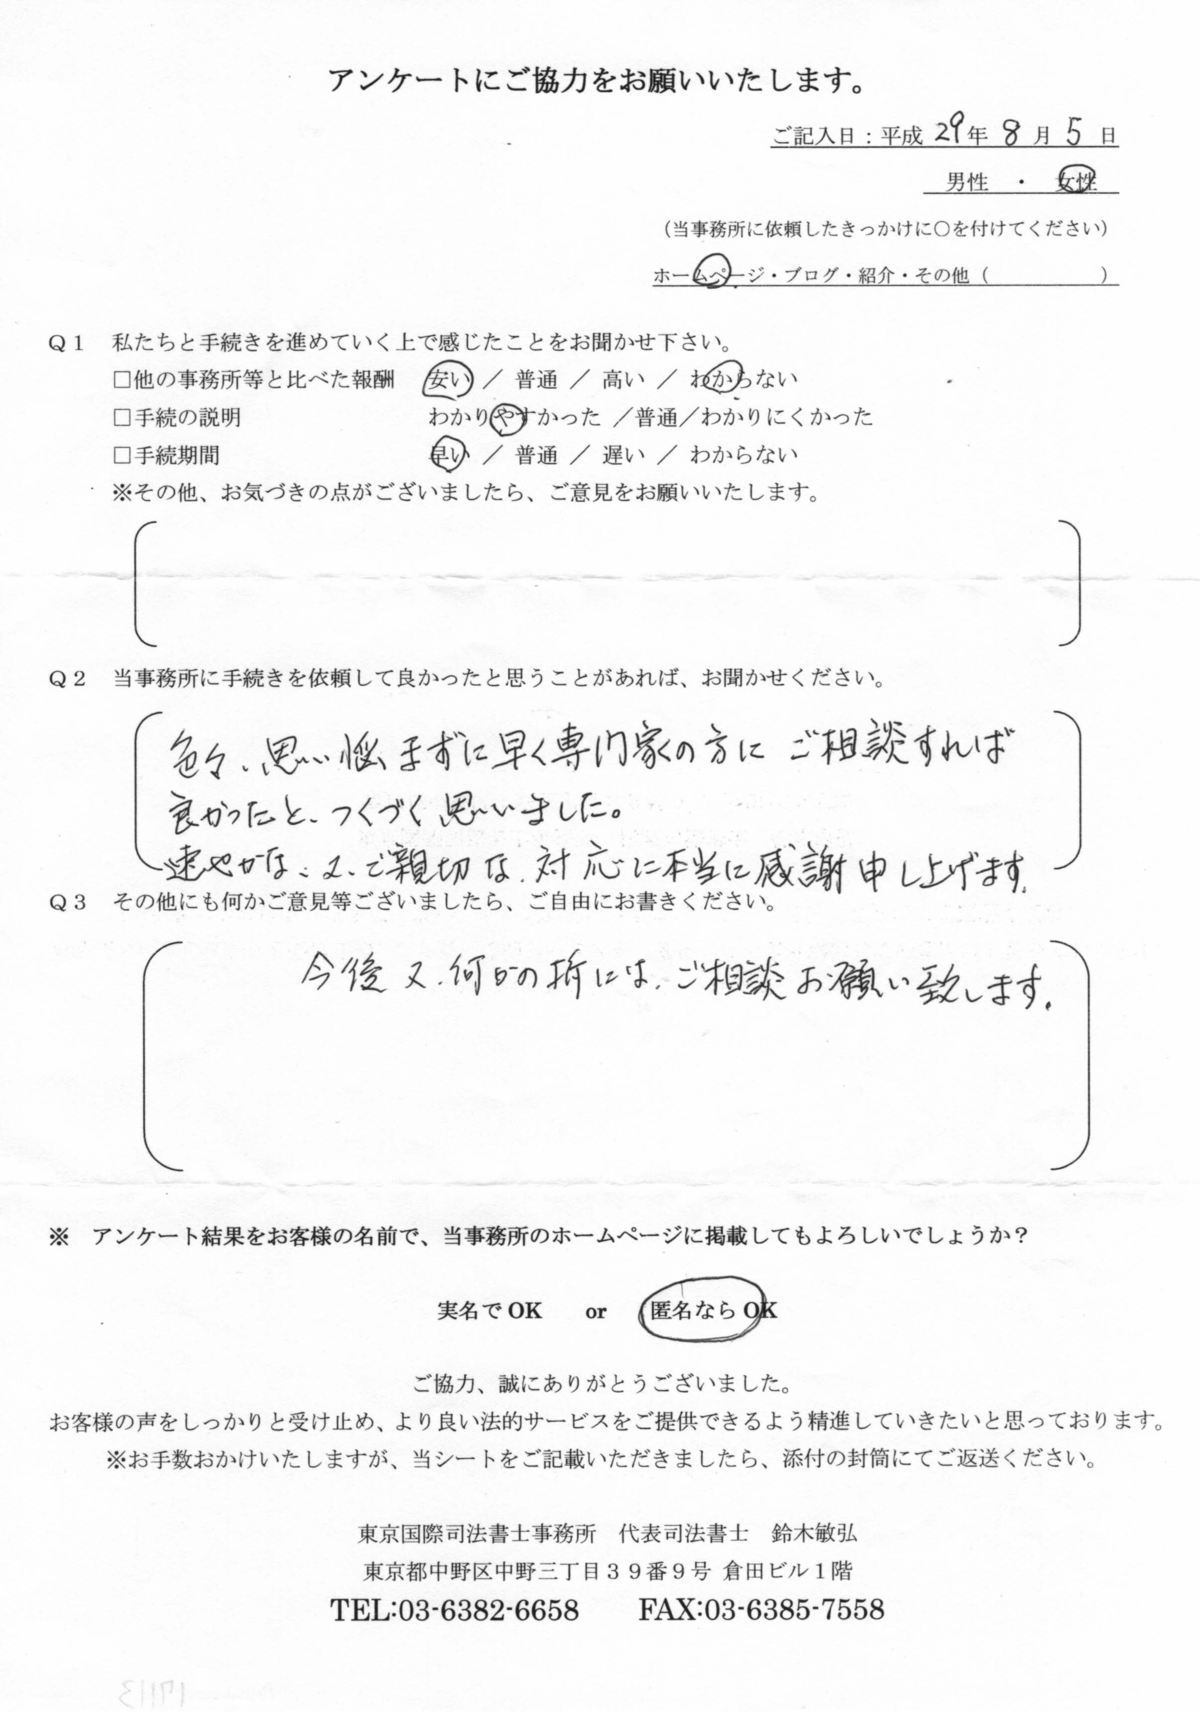 アンケートにご協力をお願いいたします。
ご記入日：平成 29年 8月 5日
男性　・　女性
（当事務所に依頼したきっかけに○を付けてください）
ホームページ・ブログ・紹介・その他（　　　　　　）
Ｑ１　私たちと手続きを進めていく上で感じたことをお聞かせ下さい。
□他の事務所等と比べた報酬　安い ／ 普通 ／ 高い ／ わからない
□手続の説明　わかりやすかった ／普通／わかりにくかった
□手続期間　早い ／ 普通 ／ 遅い ／ わからない
※その他、お気づきの点がございましたら、ご意見をお願いいたします。
Ｑ２　当事務所に手続きを依頼して良かったと思うことがあれば、お聞かせください。
色々、思い悩まずに早く専門家の方に ご相談すれば
良かったと、つくづく思いました。
速やかな、又、ご親切な、対応に本当に感謝申し上げます。
Ｑ３　その他にも何かご意見等ございましたら、ご自由にお書きください。
今後又、何かの折には、ご相談お願い致します。
※　アンケート結果をお客様の名前で、当事務所のホームページに掲載してもよろしいでしょうか？
実名でOK　or　匿名ならOK
ご協力、誠にありがとうございました。
お客様の声をしっかりと受け止め、より良い法的サービスをご提供できるよう精進していきたいと思っております。
※お手数おかけいたしますが、当シートをご記載いただきましたら、添付の封筒にてご返送ください。
東京国際司法書士事務所　代表司法書士　鈴木敏弘
東京都中野区中野三丁目３９番９号 倉田ビル１階
TEL:03-6382-6658　FAX:03-6385-7558